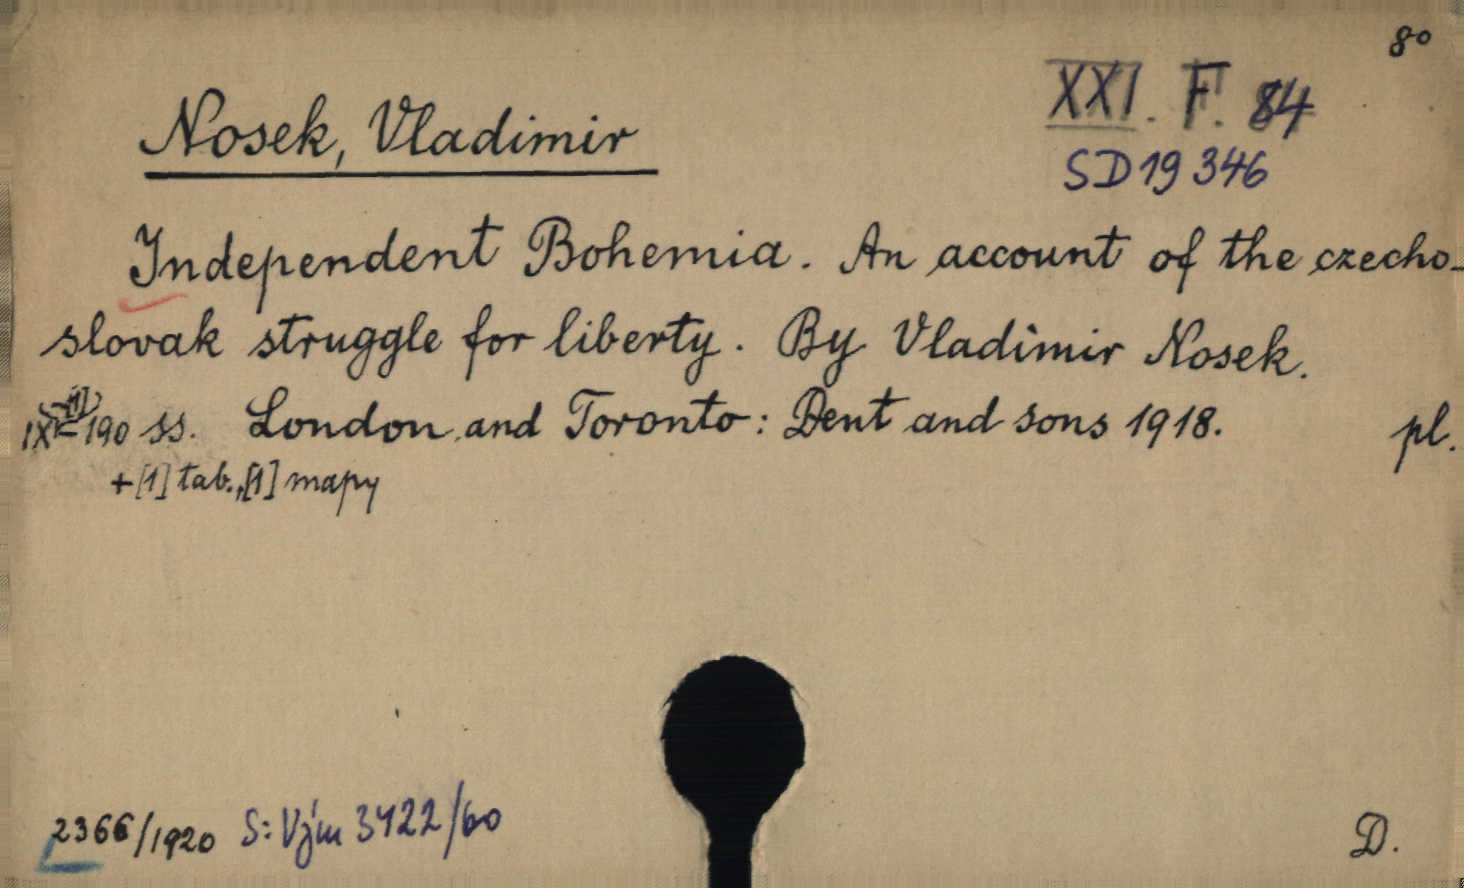 8°
XXI. F. 84
Nosek, Vladimir
SD 19 346
Independent Bohemia. An account of the czecho-
slovak struggle for liberty. By Vladimir Nosek.
190 ss. London and Toronto: Dent and sons 1918. pl.
+[1] tab., [1] mapy
2366/1920 S: Vjm 3422/60
D.